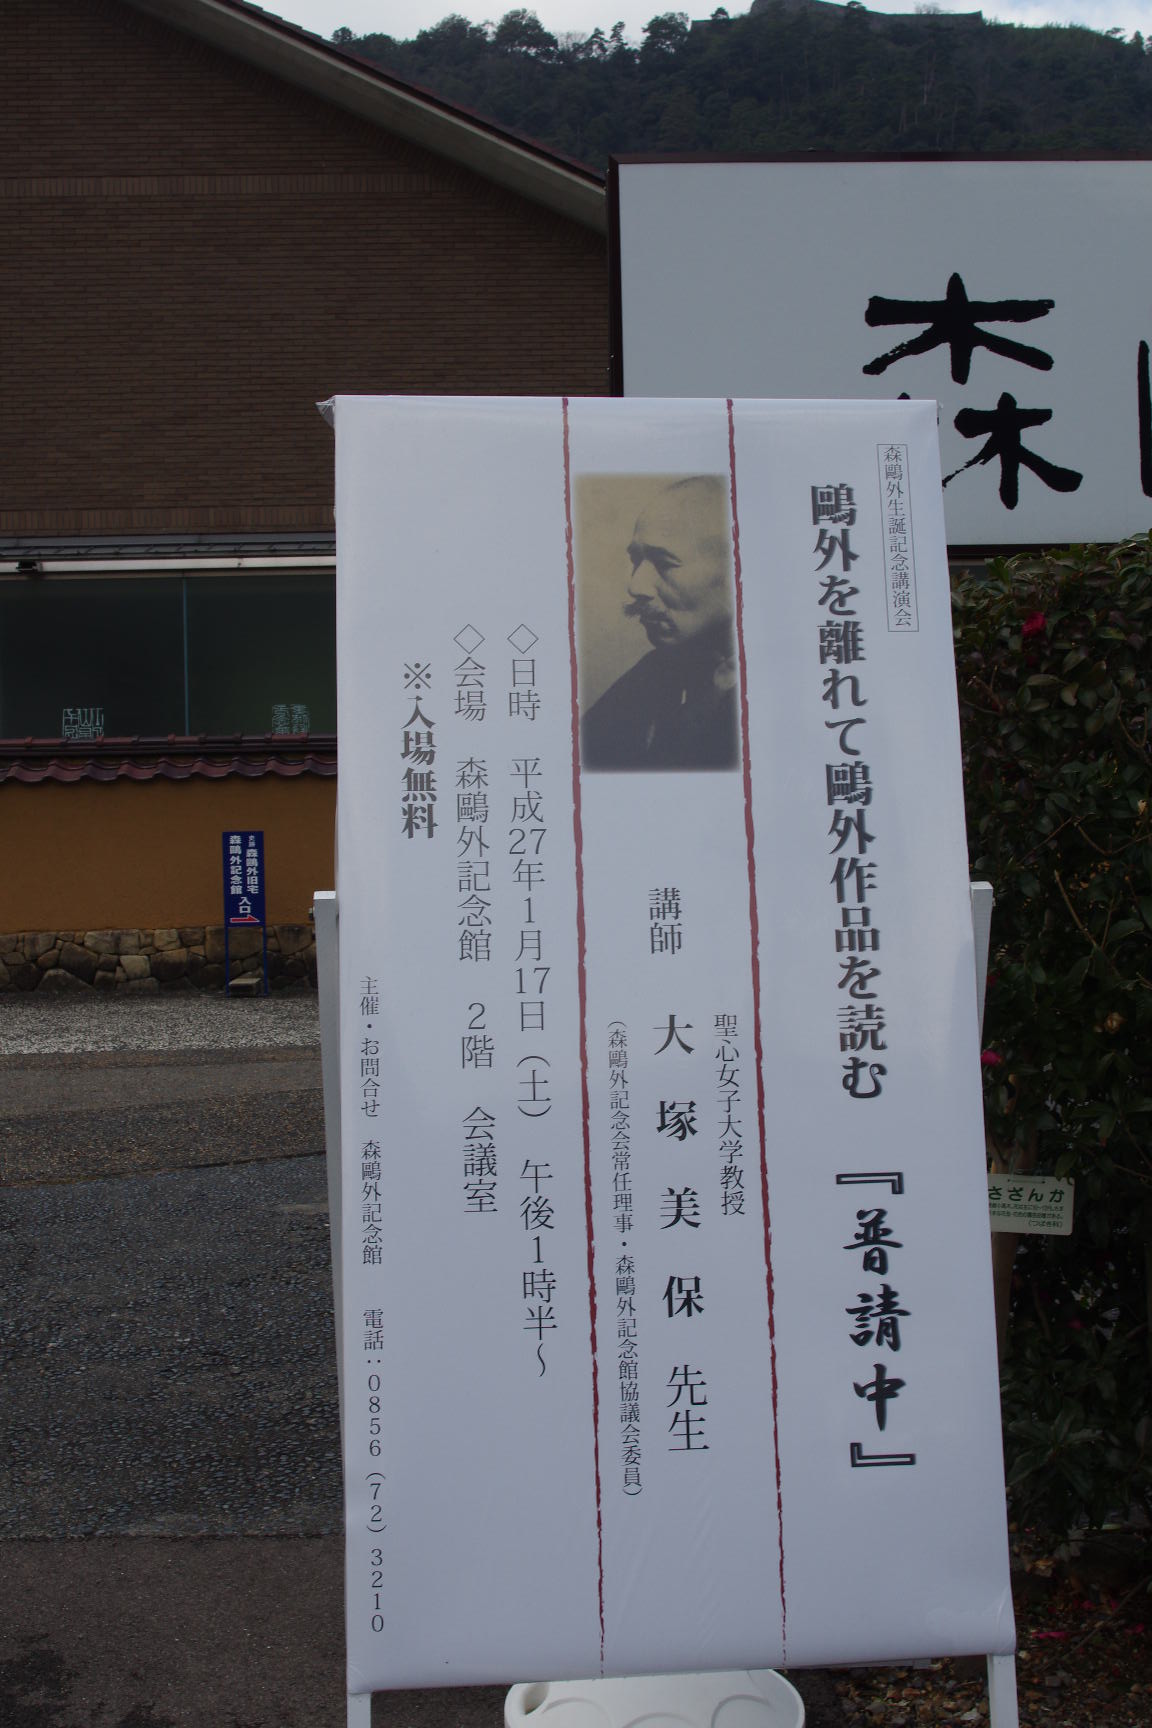 森鷗外生誕記念講演会
鷗外を離れて鷗外作品を読む 『普請中』
聖心女子大学教授
講師 大塚美保 先生
(森鷗外記念会常任理事・森鷗外記念館協議会委員)
◇日時 平成27年1月17日(土) 午後1時半～
◇会場 森鷗外記念館 2階 会議室
※入場無料
主催・お問合せ 森鷗外記念館 電話:0856(72)3210
森
史跡 森鷗外旧宅
森鷗外記念館 入口
さざんか
(つばき科)